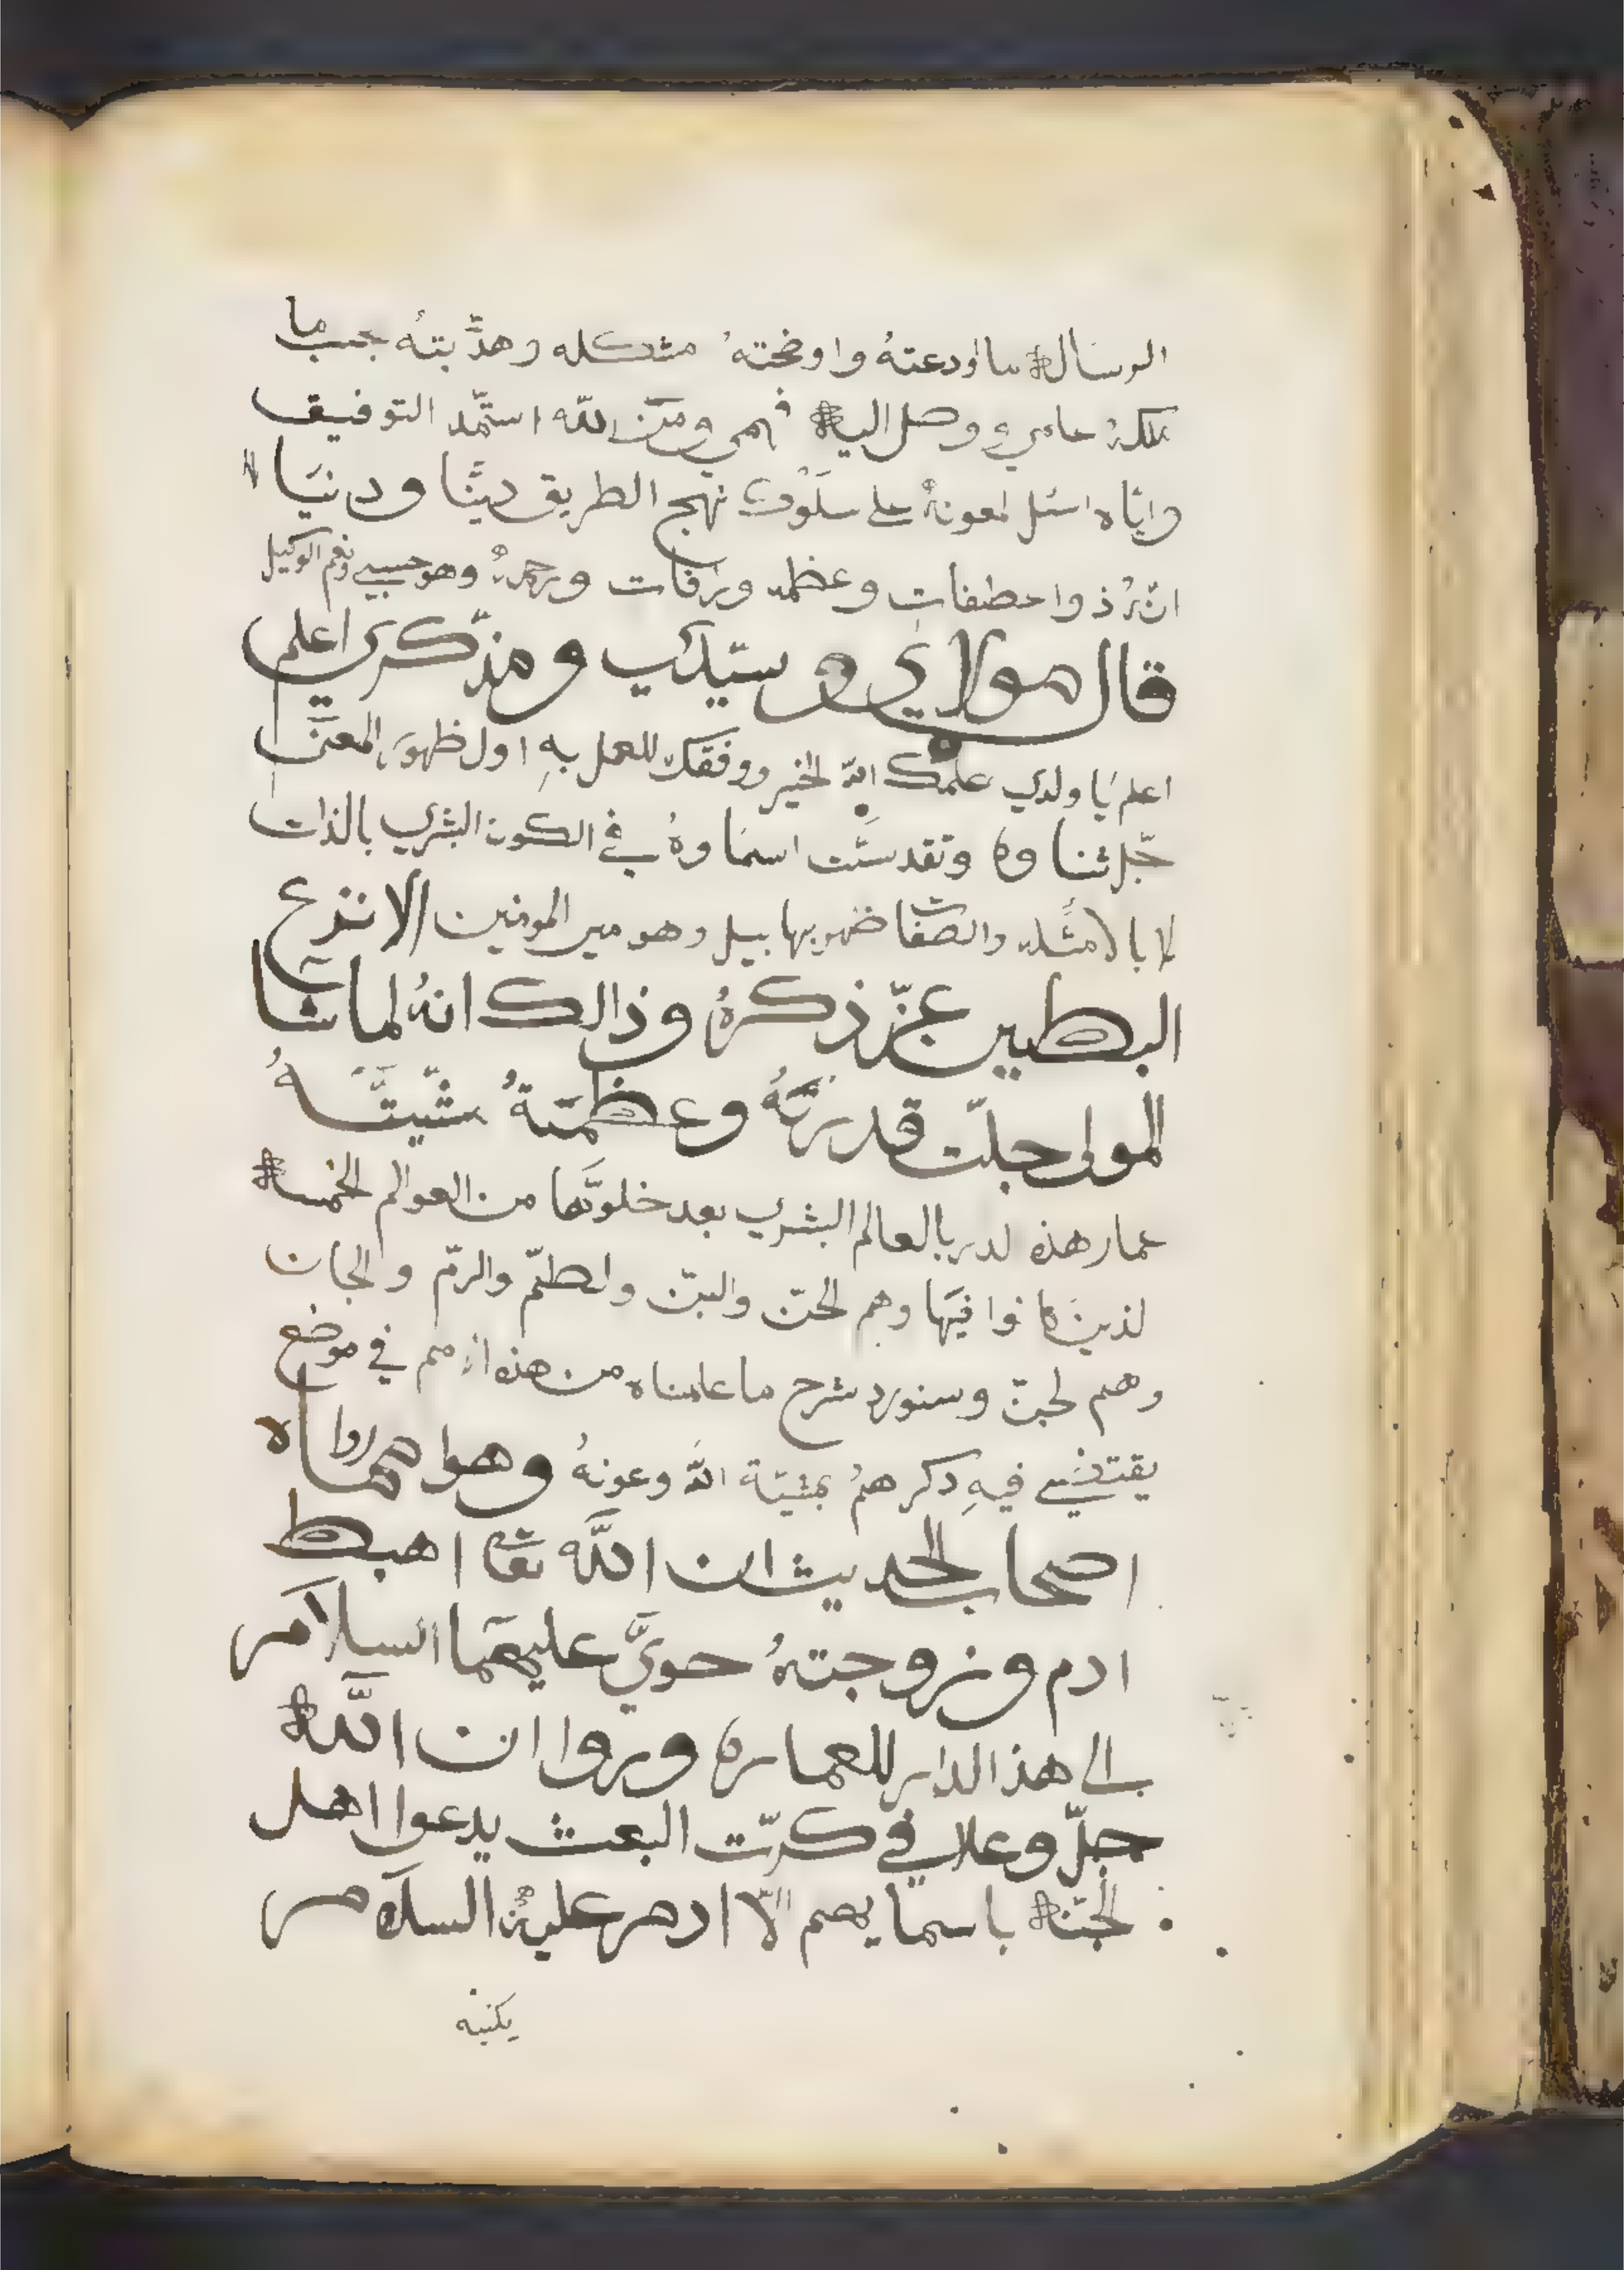 الرسالة ما اودعتهُ واوضحتهُ مشكله وهذّبتهُ بحسب ما
ملكهُ علمي ووصل اليه فهمي ومن اللّه استمّد التوفيق
وايّاه اسئل لمعونهُ على سلوك نهج الطريق ديناً ودنيا
انهُ ذوا حطفات وعظمه ورافات ورحمهٌ وهو حسبي ونعم الوكيل
قال مولاي وسيّدي ومذّكري اعلم
اعلم يا ولدي علمك اللّه الخير ووفقك للعمل بهِ اول ظهور المعنى
جّل ثناوه وتقدسّت اسماوهُ في الكون البشري بالذات
لا بالامثله والصفات ظهوربهابيل وهو مير المومنين الانزع
البطين عزّ ذكرهُ وذالك انهُ لما شا
المولى جلّت قدرتهُ وعظمتهُ مشّيتهُ
عمار هذه لدار بالعالم البشري بعد خلوتها من العوالم الخمسة
لذين كانوا فيها وهم لحنّ والبنّ والطمّ والرمّ والجان
وهم لجنّ وسنورد شرح ما علمناه من هذه الامم في موضع
يقتضي فيهِ دكرهمُ بمشيّة اللّه وعونهُ وهوا مما رواه
اصحاب الحديث ان اللّه تعا اهبط
ادم وزوجتهُ حوىَّ عليهما السلام
الى هذ الدار للعماره وروا ان اللّه
جلّ وعلا في كرّت البعث يدعوا اهل
لجنّة باسمايهم الّا ادم عليهُ السلام
يكنيه